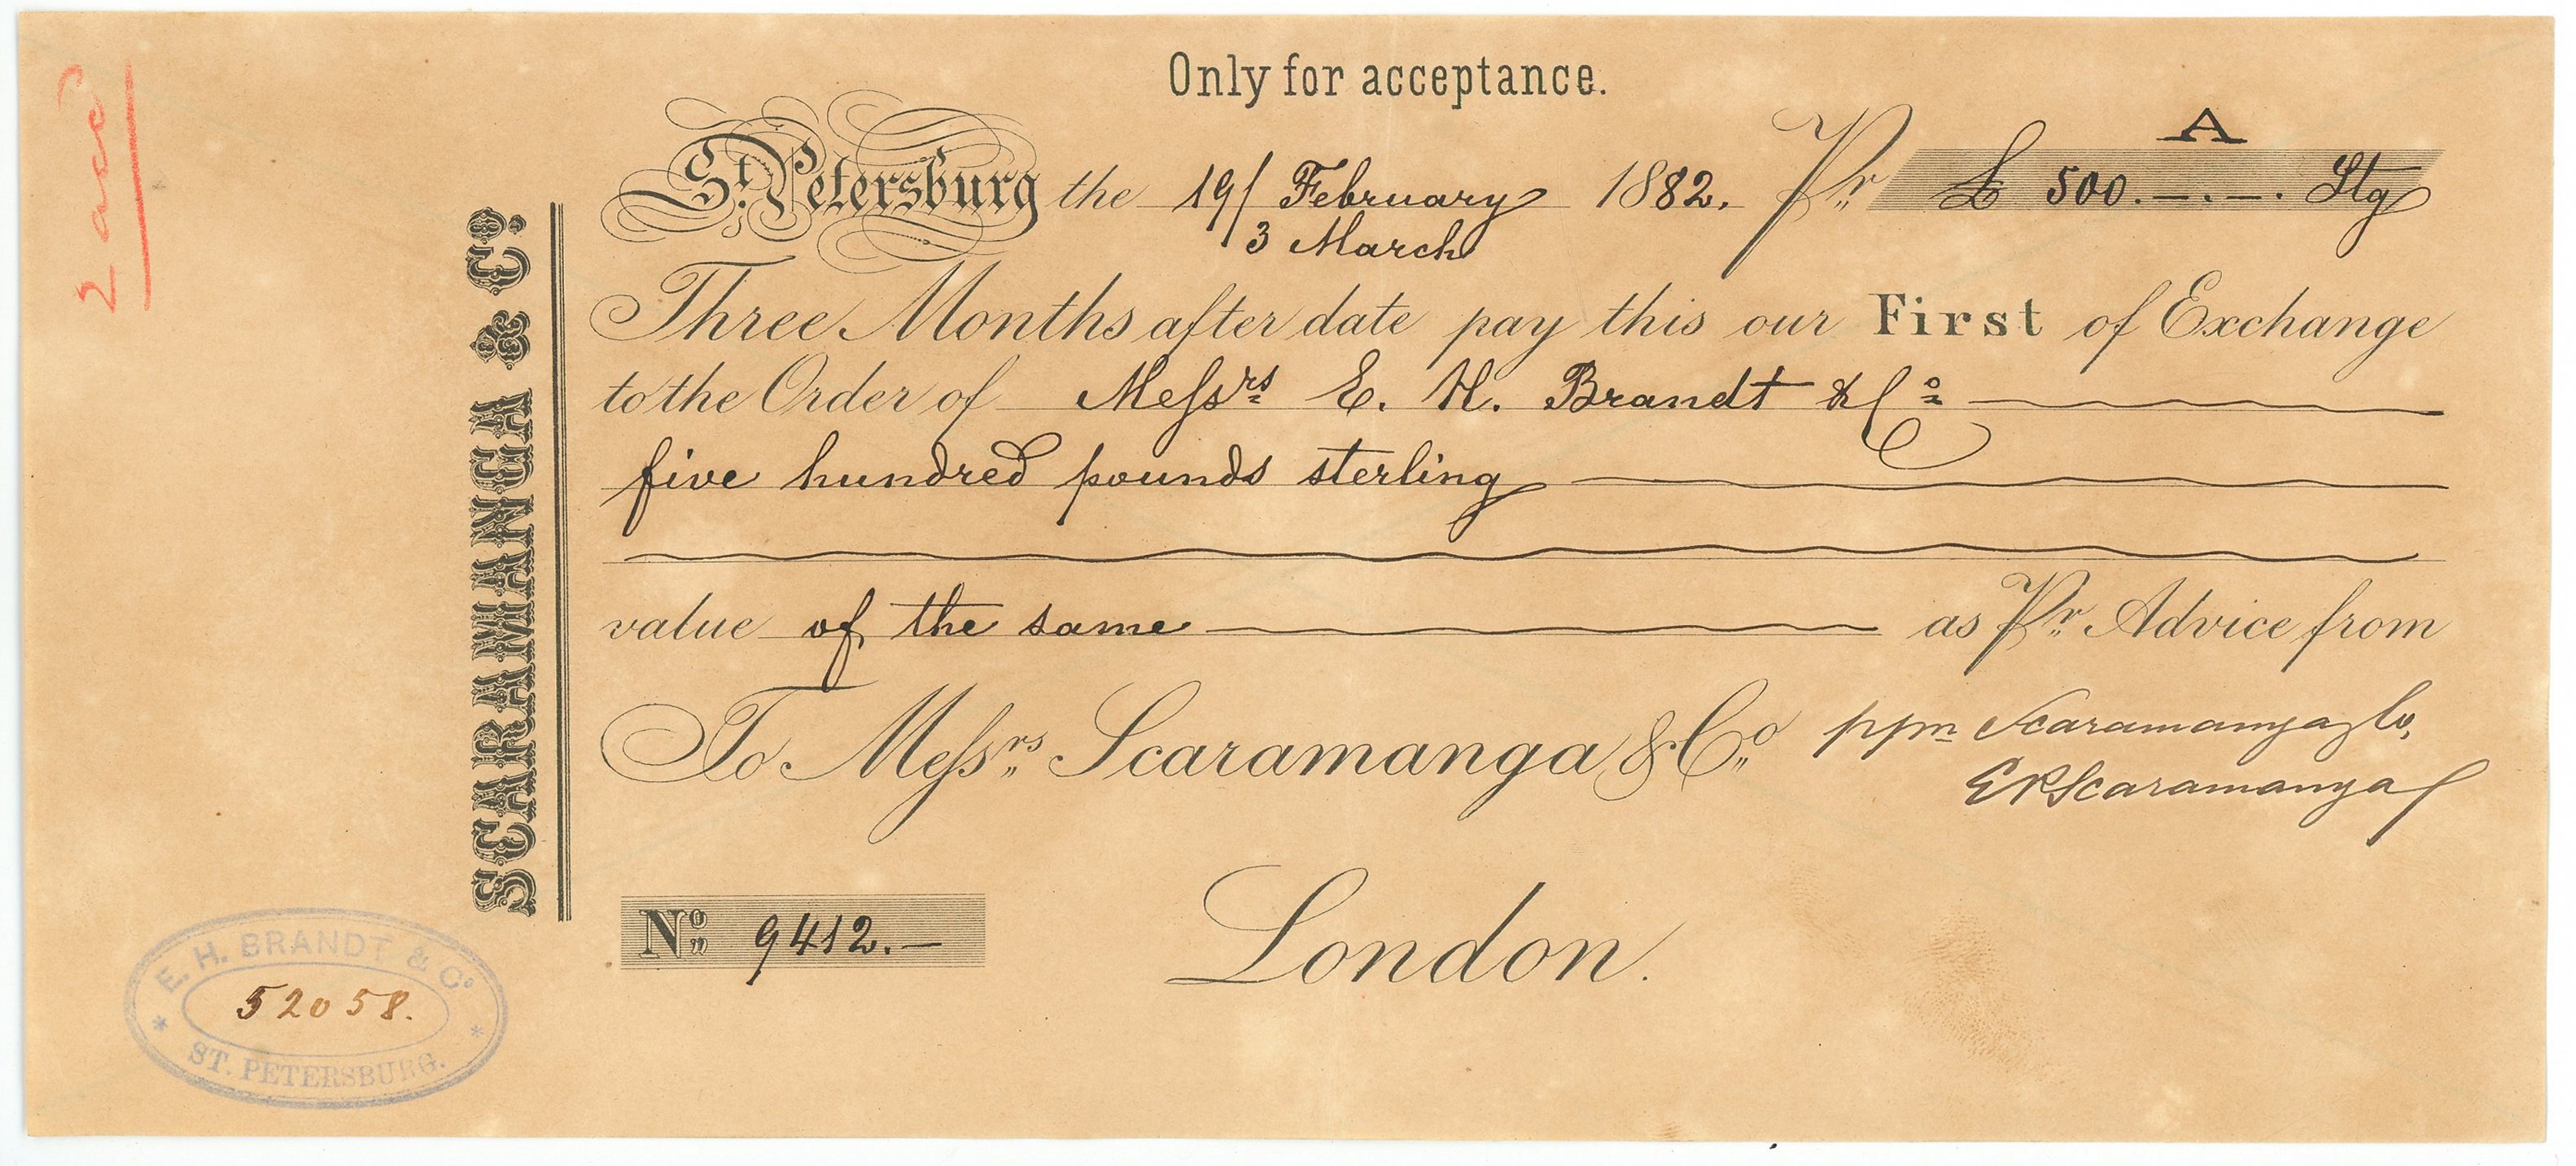 Only for acceptance.
A
St. Petersburg the 19/ February 1882. Pr £ 500.—.—. Stg
3 March
Three Months after date pay this our First of Exchange
to the Order of Messrs E. H. Brandt & Co
five hundred pounds sterling
value of the same as Pr. Advice from
To Messrs. Scaramanga & Co. ppn Scaramanga & Co,
E P Scaramanga
London.
No. 9412.—
SCARAMANGA & Co.
E. H. BRANDT & Co.
52058.
ST. PETERSBURG.
2 acc